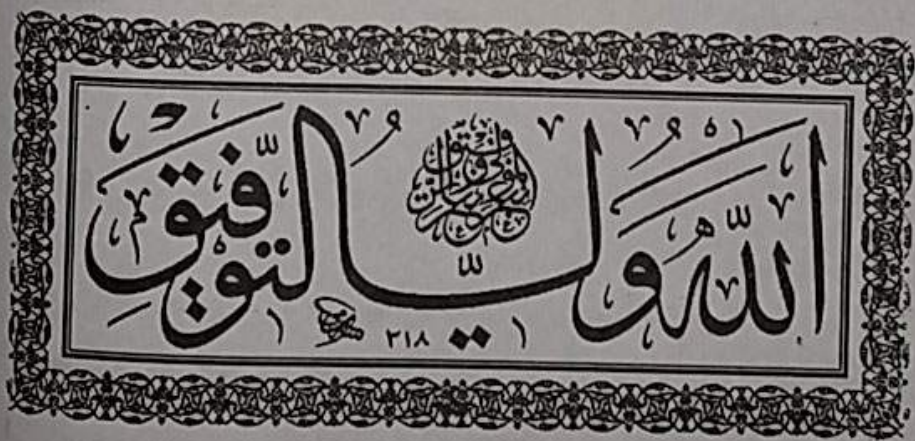 اللّٰهُ وَلِيُّ التَّوْفِيقِ
٢١٨